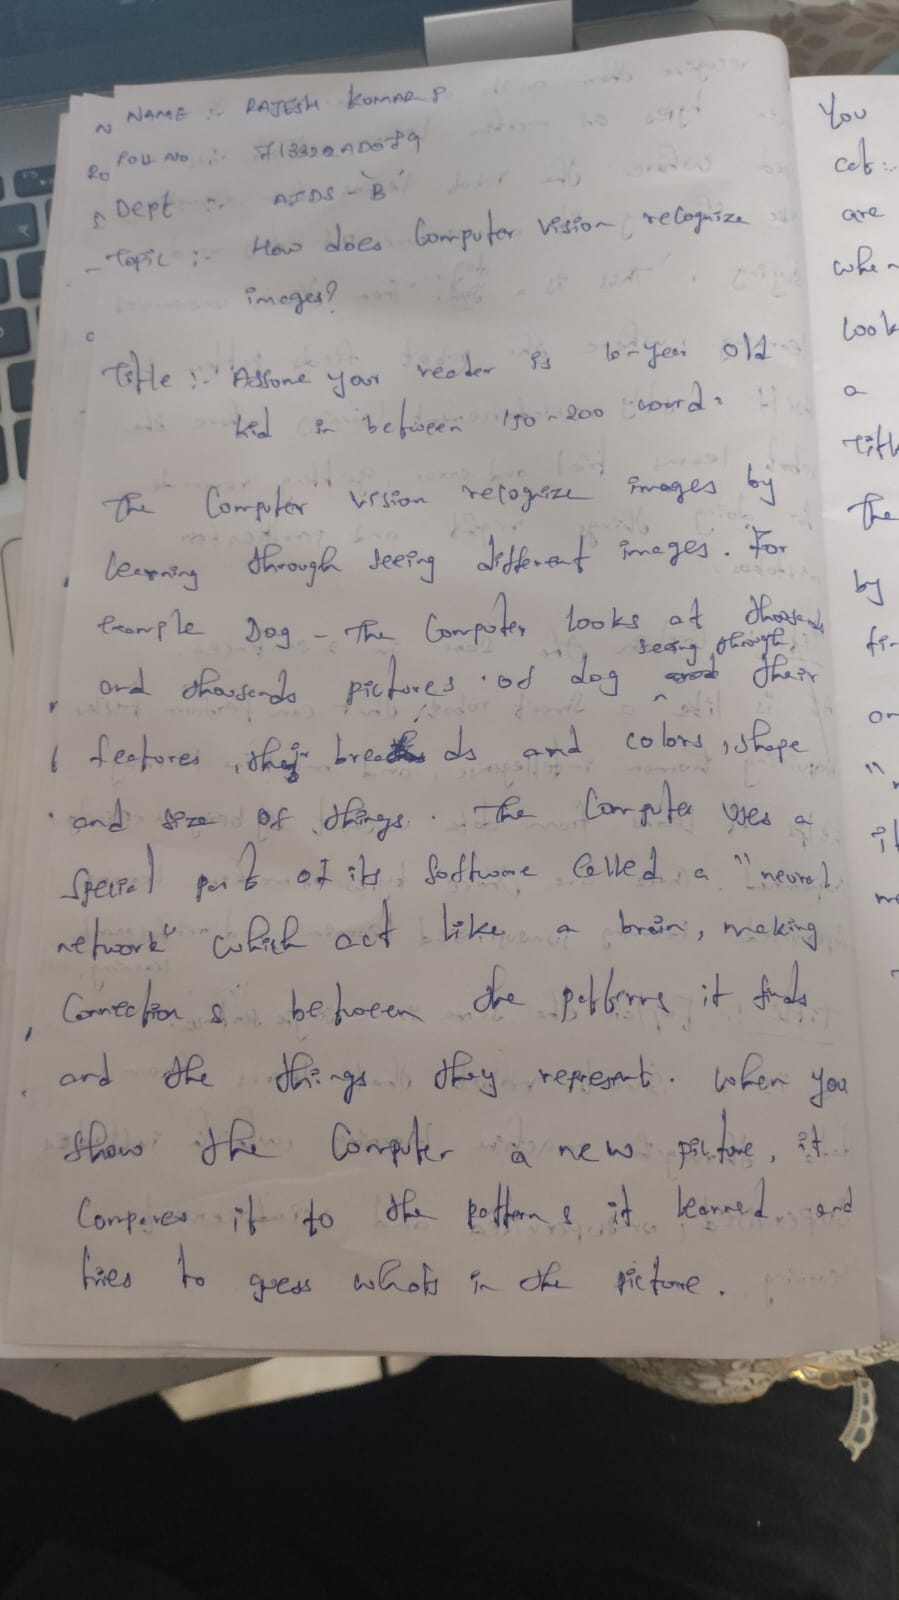 NAME :- RAJESH KUMAR P
ROLL NO :-
Dept :- AIDS - 'B'
Topic :- How does Computer vision recognize
images?
Title :- Assume your reader is 10-year old
kid in between 150-200 words
The Computer vision recognize images by
learning through seeing different images. For
example Dog - The Computer looks at thousands
seeing through
and thousands pictures of dog their
features, their breads and colors, shape
and size of things. The Computer uses a
special part of its software called a "neural
network" which act like a brain, making
connections between the patterns it finds
and the things they represent. When you
show the Computer a new picture, it
compares it to the patterns it learned and
tries to guess whats in the picture.
You
cat:-
are
when
look
a
Title
The
by
fin
on
"
it